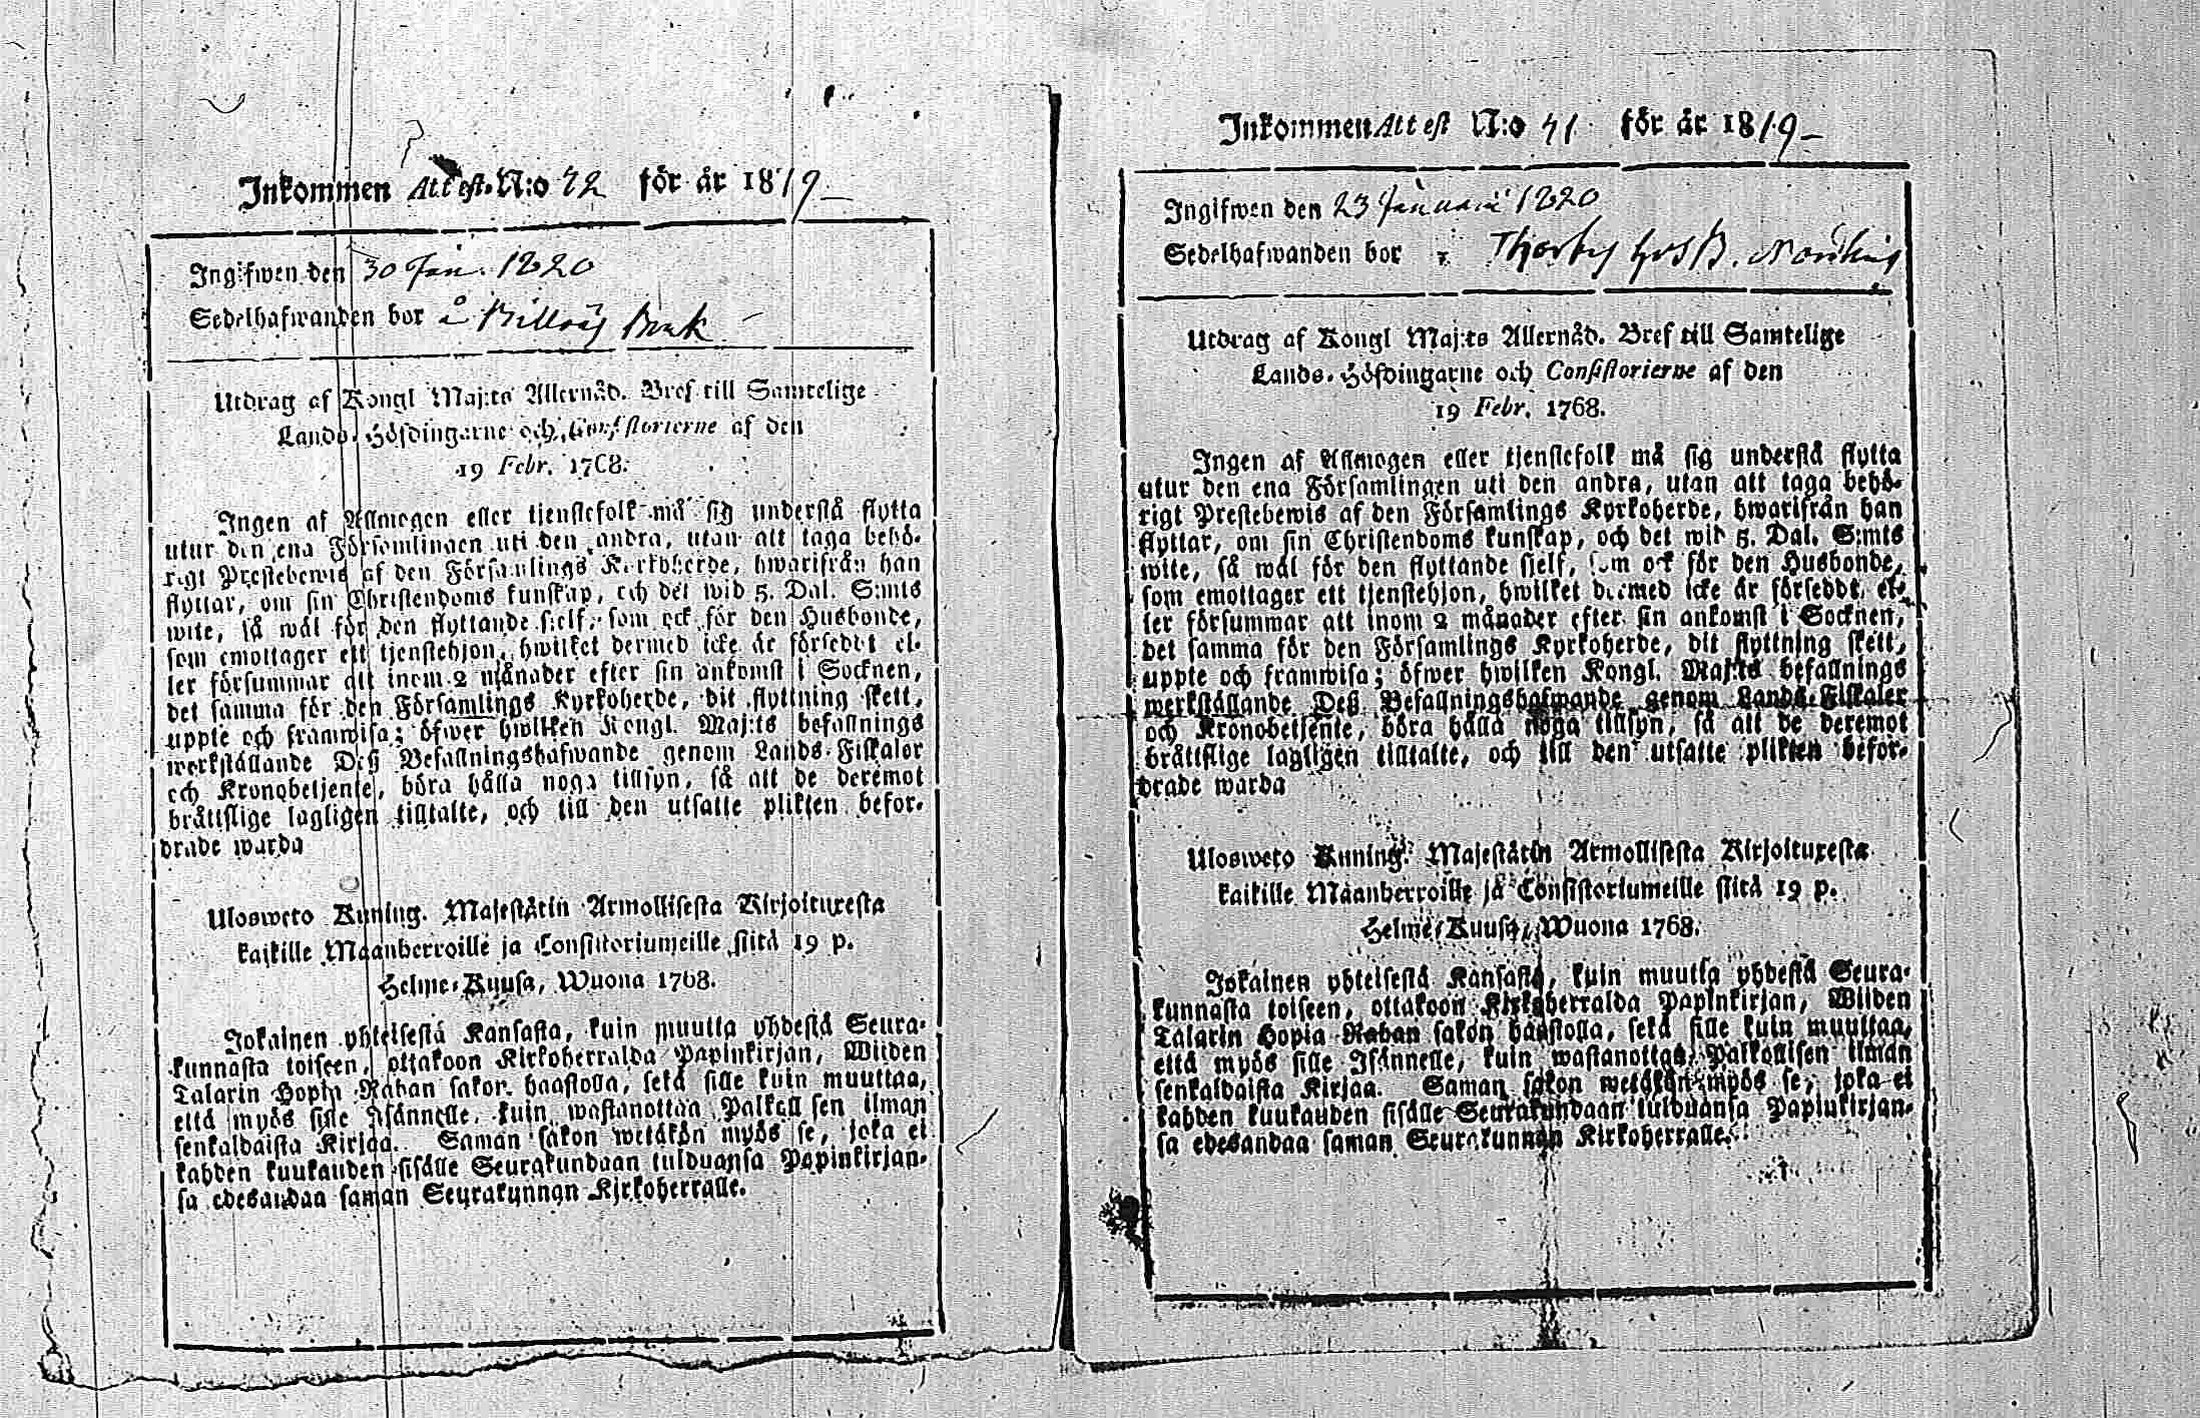 Inkommen Attest. N:o 42 för år 1819
Ingifwen den 30 Jan. 1820
Sedelhafwanden bor å Billnäs Bruk
Utdrag af Kongl Maj:ts Allernåd. Bref till Samtelige
Lands-Höfdingarne och Consistorierne af den
19 Febr. 1768.
Ingen af Allmogen eller tjenstefolk må sig understå flytta
utur den ena Församlingen uti den andra, utan att taga behö-
rigt Prestebewis af den Församlings Kyrkoherde, hwarifrån han
flyttar, om sin Christendoms kunskap, och det wid 5. Dal. S:mts
wite, så wäl för den flyttande sjelf, som ock för den Husbonde,
som emottager ett tjenstehjon, hwilket dermed icke är förseddt el-
ler försummar att inom 2 månader efter sin ankomst i Socknen,
det samma för den Församlings Kyrkoherde, dit flyttning skett,
uppte och framwisa; öfwer hwilken Kongl. Maj:ts befallnings
werkställande Deß Befallningshafwande genom Lands-Fiskaler
och Kronobetjente, böra hålla noga tillsyn, så att de deremot
bråttslige lagligen tilltalte, och till den utsatte plikten befor-
drade warda
Ulosweto Kuning. Majestätin Armollisesta Kirjoituxesta
kaikille Maanherroille ja Consistoriumeille siitä 19 p.
Helme-Kuusa, Wuona 1768.
Jokainen yhteisestä Kansasta, kuin muutta yhdestä Seura-
kunnasta toiseen, ottakoon Kirkoherralda Papinkirjan, Wiiden
Talarin Hopia Rahan sakon haastolla, sekä sille kuin muuttaa,
että myös sille Isännelle, kuin wastanottaa Palkollisen ilman
senkaldaista Kirjaa. Saman sakon wetäkön myös se, joka ei
kahden kuukauden sisälle Seurakundaan tulduansa Papinkirjan-
sa edesandaa saman Seurakunnan Kirkoherralle.
Inkommen Attest N:o 41 för år 1819
Ingifwen den 23 Januari 1820
Sedelhafwanden bor Thorby hos B.
Utdrag af Kongl Maj:ts Allernåd. Bref till Samtelige
Lands-Höfdingarne och Consistorierne af den
19 Febr. 1768.
Ingen af Allmogen eller tjenstefolk må sig understå flytta
utur den ena Församlingen uti den andra, utan att taga behö-
rigt Prestebewis af den Församlings Kyrkoherde, hwarifrån han
flyttar, om sin Christendoms kunskap, och det wid 5. Dal. S:mts
wite, så wäl för den flyttande sjelf, som ock för den Husbonde,
som emottager ett tjenstehjon, hwilket dermed icke är förseddt, el-
ler försummar att inom 2 månader efter sin ankomst i Socknen,
det samma för den Församlings Kyrkoherde, dit flyttning skett,
uppte och framwisa; öfwer hwilken Kongl. Maj:ts befallnings
werkställande Deß Befallningshafwande genom Lands-Fiskaler
och Kronobetjente, böra hålla noga tillsyn, så att de deremot
bråttslige lagligen tilltalte, och till den utsatte plikten befor-
drade warda
Ulosweto Kuning. Majestätin Armollisesta Kirjoituxesta
kaikille Maanherroille ja Consistoriumeille siitä 19 p.
Helme-Kuusa, Wuona 1768.
Jokainen yhteisestä Kansasta, kuin muutta yhdestä Seura-
kunnasta toiseen, ottakoon Kirkoherralda Papinkirjan, Wiiden
Talarin Hopia Rahan sakon haastolla, sekä sille kuin muuttaa,
että myös sille Isännelle, kuin wastanottaa Palkollisen ilman
senkaldaista Kirjaa. Saman sakon wetäkön myös se, joka ei
kahden kuukauden sisälle Seurakundaan tulduansa Papinkirjan-
sa edesandaa saman Seurakunnan Kirkoherralle.